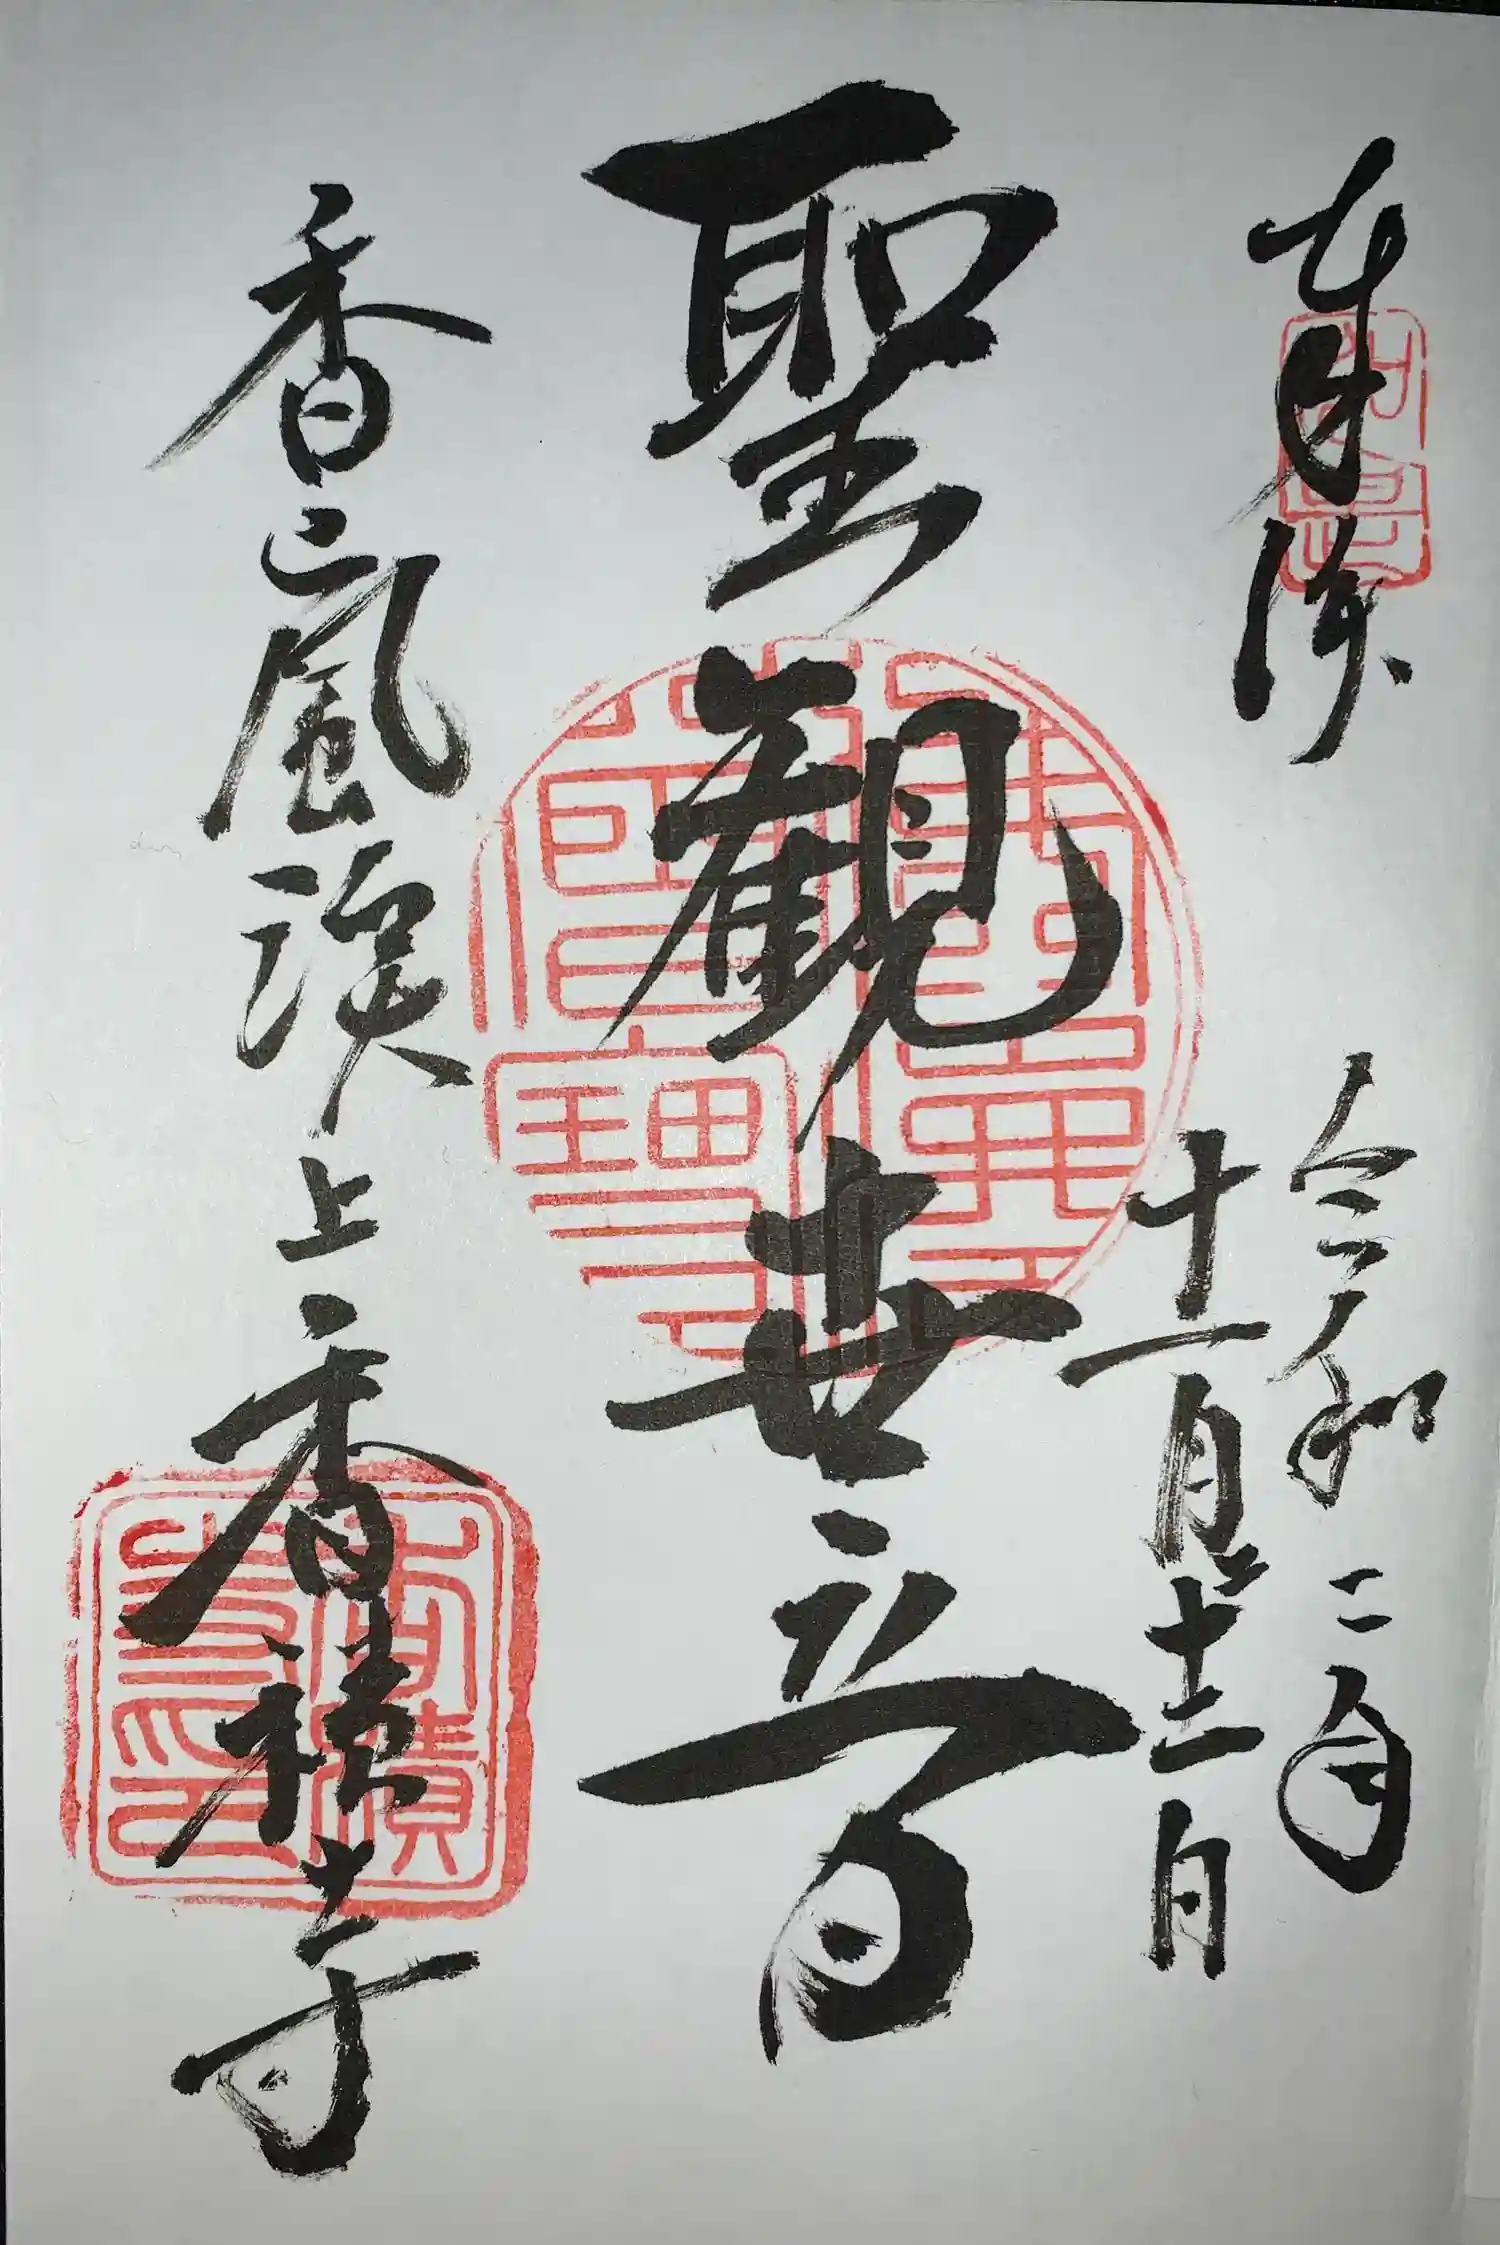 奉拝
令和二年
十一月二十二日
聖観世音
香嵐渓上 香積寺